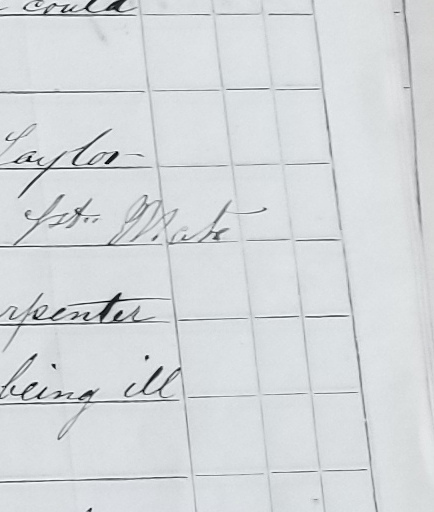 could
Taylor
1st.. Mate
rpenter
being ill